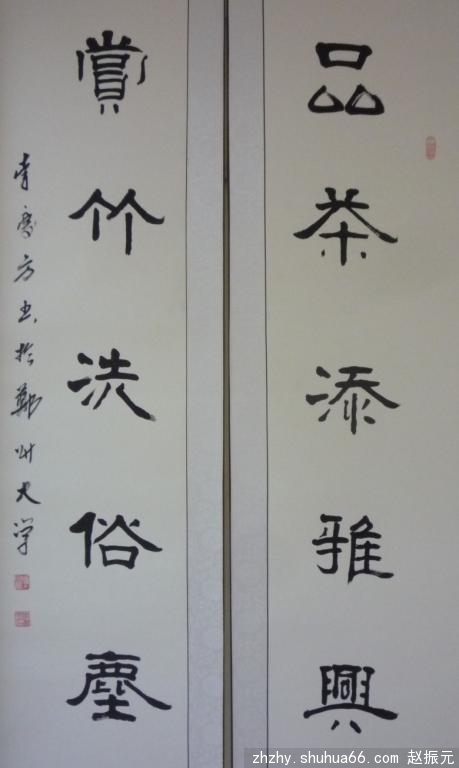 品茶添雅興
賞竹洗俗塵
方书於鄭州大学
zhzhy.shuhua66.com 赵振元